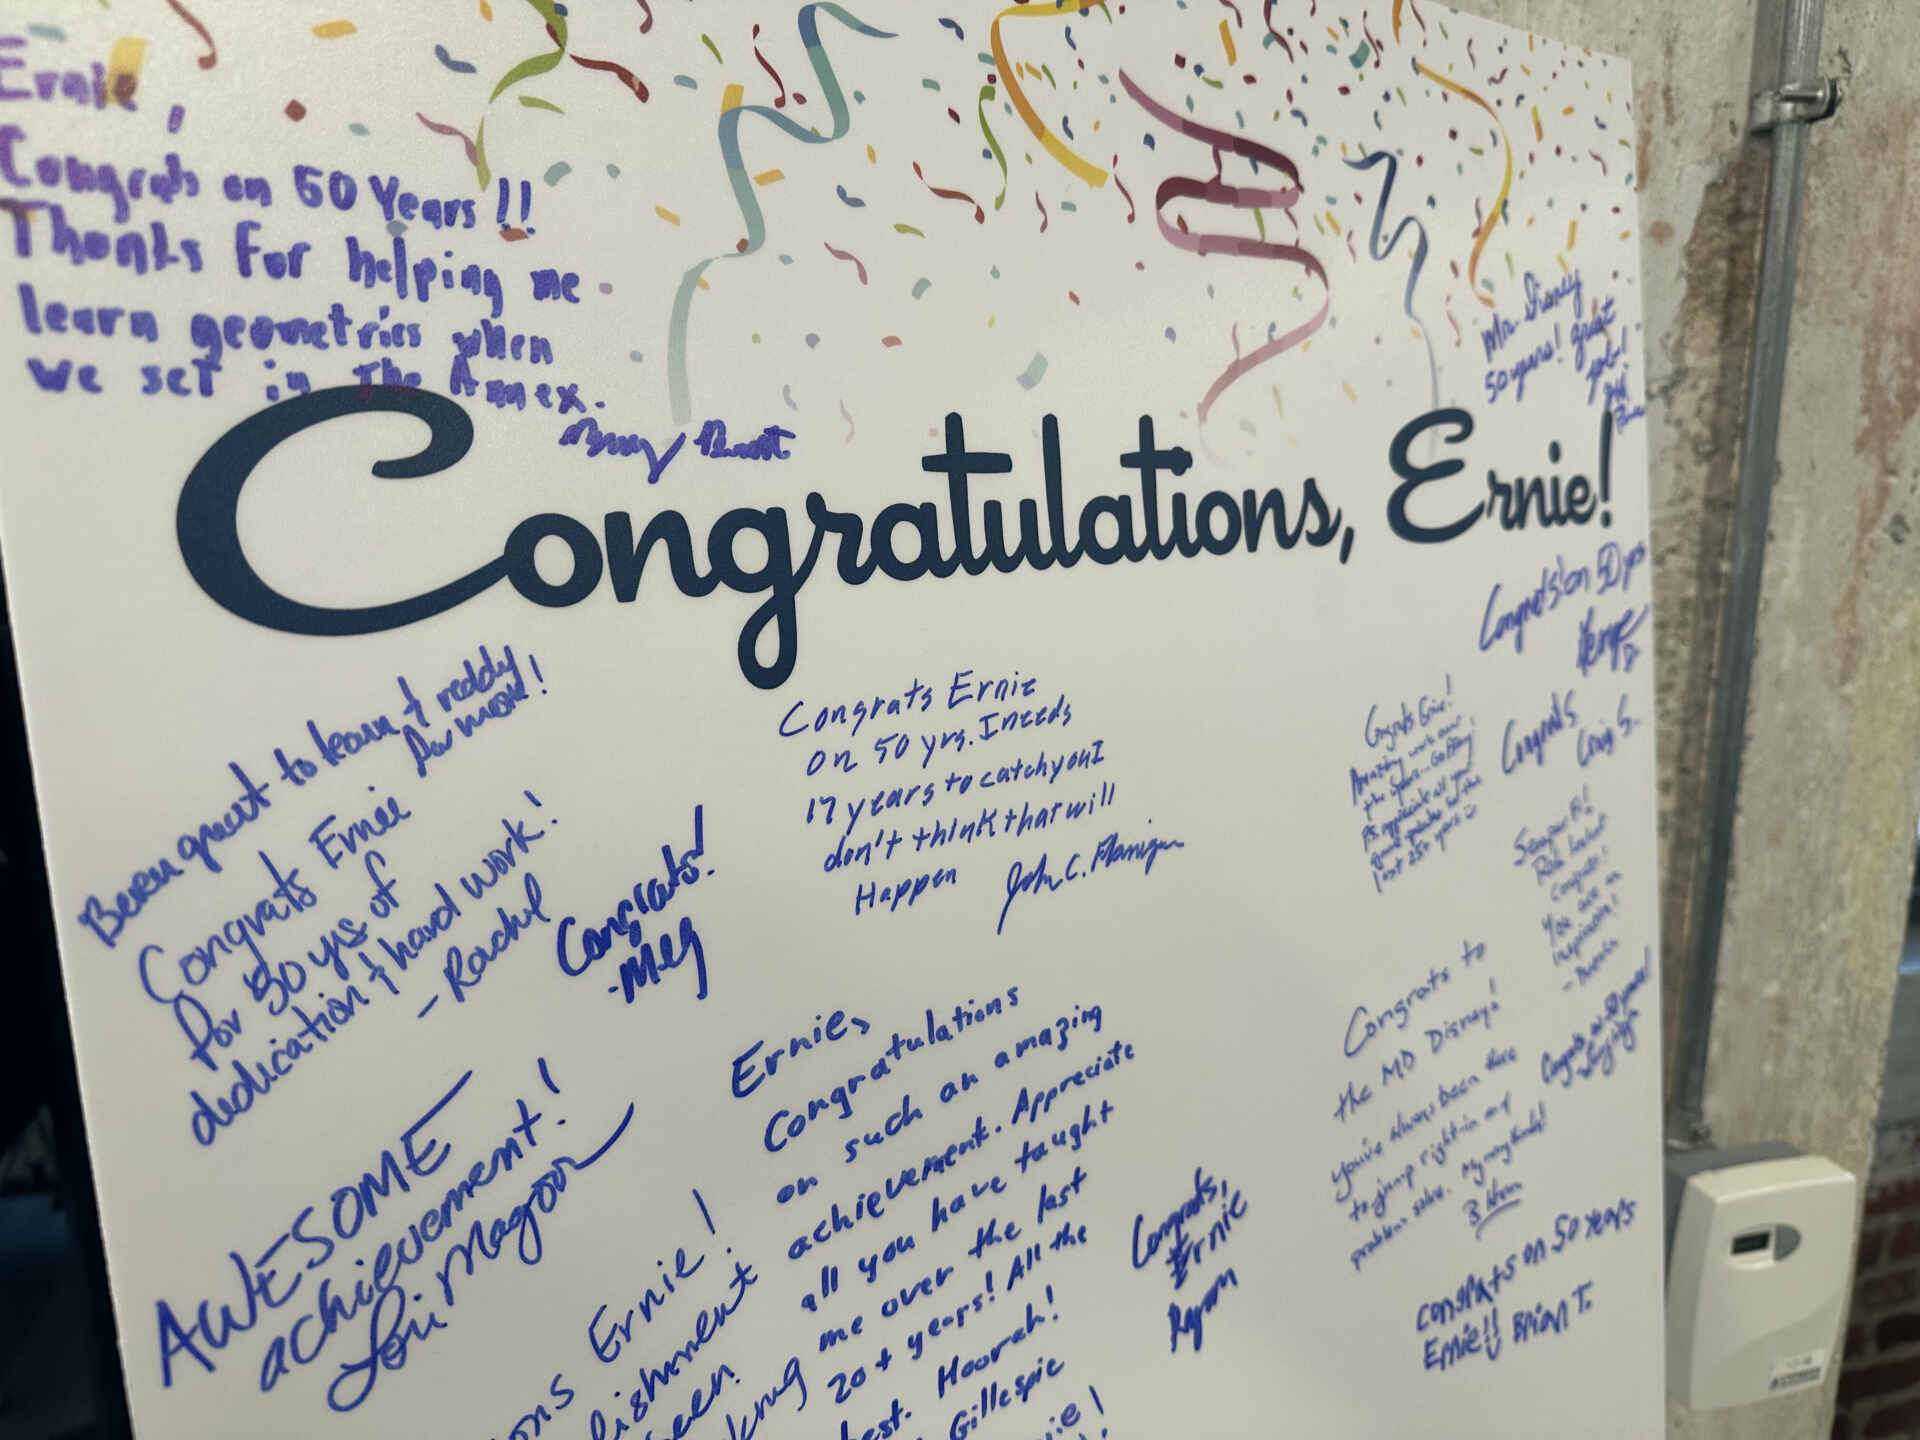 Ernie,
Congrats on 50 Years!!
Thanks for helping me
learn geometrics when
we set in the Annex.
Mr. Disney
50 years! great
job!
Congratulations, Ernie!
Congrats! on 50 yrs
Been great to learn & reddy
for more!
Congrats Ernie
for 50 yrs of
dedication & hard work!
- Rachel
Congrats!
- Meg
Congrats Ernie
on 50 yrs. I needs
17 years to catch you I
don't think that will
Happen John C. Flanigan
Congrats Ernie!
Amazing work over
the years
PS. appreciate all your
last 25+ years
Congrats
Craig S.
Semper Fi!
Congrats!
You are an
inspiration!
AWESOME
achievement!
Lori Magoon
Ernie,
Congratulations
on such an amazing
achievement. Appreciate
all you have taught
me over the last
20+ years! All the
best. Hoorah!
Gillespie
Congrats to
the MD Disney!
you've always been there
to jump right in and
problem solve. Many many thanks!
Congrats on 50 years!
Congrats,
Ernie
Congrats on 50 years
Ernie!! Brian T.
Ernie!